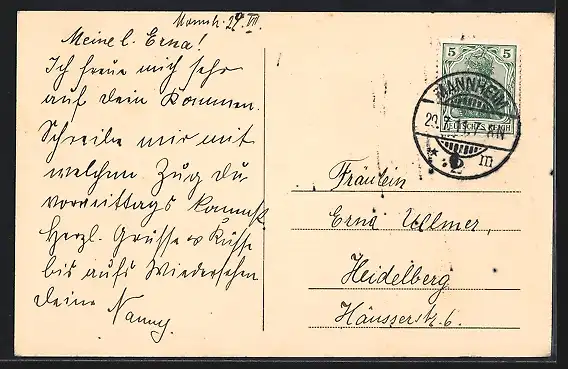 Mannh. 29 VII.
Meine l. Erna!
Ich freue mich sehr
auf dein Kommen.
Schreibe mir mit
welchem Zug du
vormittags kommst
Herzl. Grüsse & Küsse
bis aufs Wiedersehen
deine Nanny.
5 5
MANNHEIM
29.7.
DEUTSCHES REICH
* 2 m
Fräulein
Erna Ullmer,
Heidelberg
Häusserstr. 6.